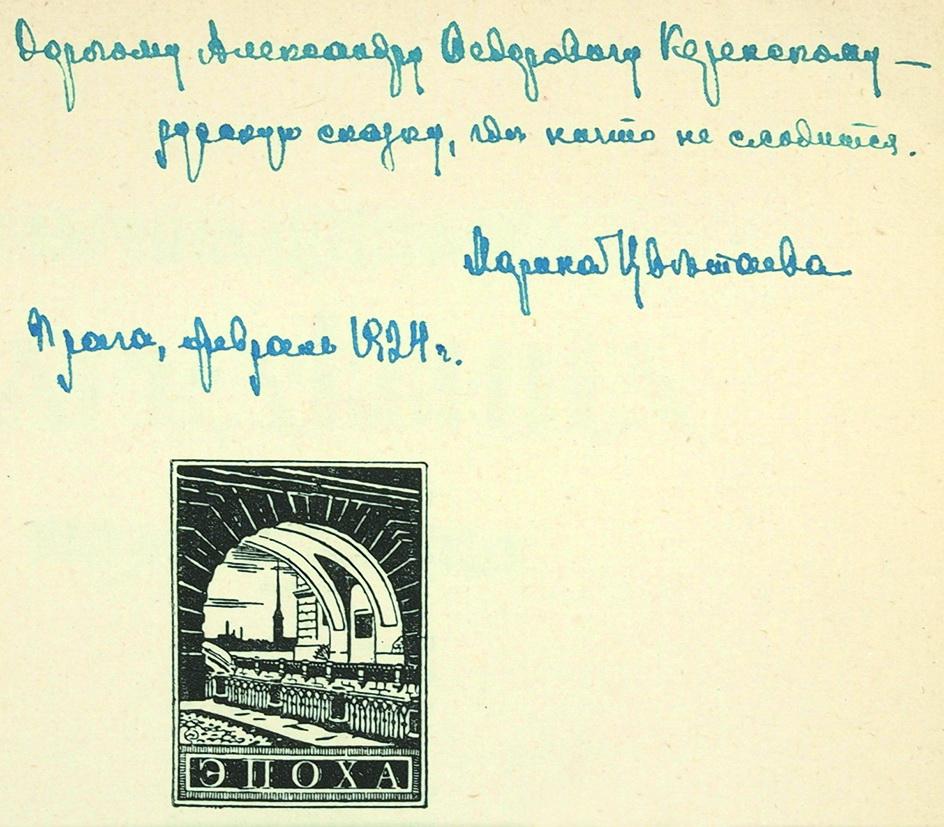 Дорогому Александру Ѳедоровичу Керенскому —
русскую сказку, гдѣ ничто не сходится.
Марина Цвѣтаева
Прага, февраль 1924 г.
ЭПОХА